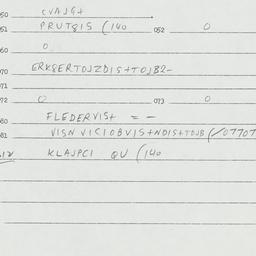 050 CVAJGT
051 PRUTGIS (140 052 0
060 0
070 ERKSERTOJZDISTTOJB2-
071
072 0 073 0
080 FLEDERVIST = -
081 VISN VICIOBVISTNDISTTOJB (/07707
KLAJPCI QU (140